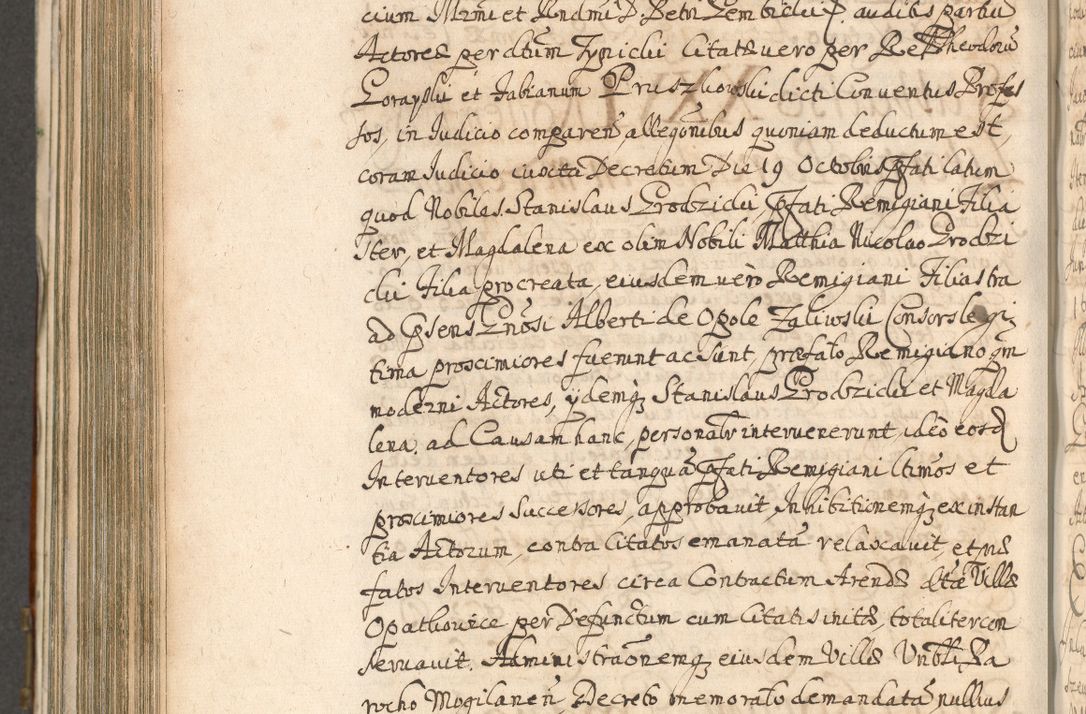 cium Mrmi et Rndmi D. Petri Gembicki P. auditis partibus
Actores per dtum Zynicki Citatus vero per Rel Theodoru
Gorayski et Fabianum Pruszkowski dicti Conventus Profes
sos, in Judicio comparen, allegonibus quoniam deductum est,
coram Judicio iuxta Decretum Die 19 Octobris pfati latum
quod Nobiles Stanislaus Grodzicki, pfati Remigiani Filia
ster, et Magdalena ex olim Nobili Matthia Nicolao Grodzi
cki Filia procreata, eiusdem uero Remigiani Filiastra
ad psens Gnosi Alberti de Opole Zaliwski Consors legi
tima proximiores fuerunt ac sunt, præfato Remigiano qm
moderni Actores, ydemq3 Stanislaus Grodzicki et Magda
lena, ad Causam hanc, personalr interuenerunt, ideo eosd
Interuentores uti et tanquã pfati Remigiani ltimos et
proximiores Successores, approbauit, Inhibitionemq3 ex instan
tia Actorum, contra Citatos emanatã relaxauit, et præ
fatos Interuentores circa Contractum Arendæ dtæ Villæ
Opatkowice per Defunctum cum Citatis initæ, totaliter con
seruauit. Administraonemq3 eiusdem Villæ Vnbli Pa
rocho Mogilanen Decreto memorato demandatã nullius